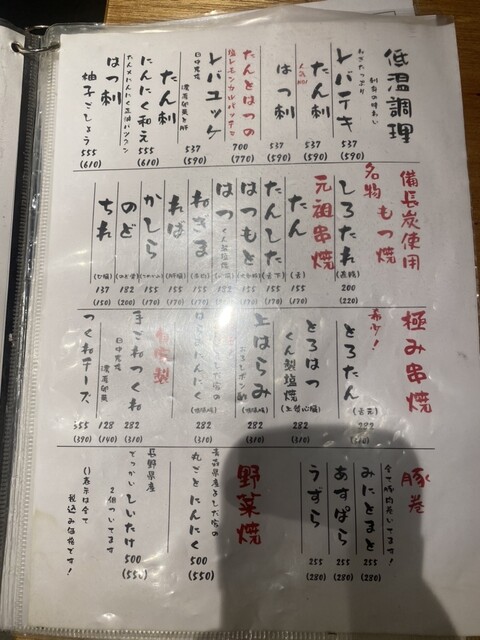 低温調理
ねぎたっぷり
レバテキ
537
(590)
人気NO1
たん刺
537
(590)
はつ刺
537
(590)
たんとはつの
塩レモンカルパッチョ
700
(770)
レバユッケ
537
(590)
たん刺
にんにく和え
555
(610)
はつ刺
柚子ごしょう
555
(610)
備長炭使用
名物 もつ焼
しろたれ
(直腸)
200
(220)
元祖串焼
たん
(舌)
155
(170)
たんした
(舌下)
155
(170)
はつもと
155
(170)
はつ
くん製塩焼
155
(170)
ねぎま
155
(170)
ればあ
155
(170)
かしら
155
(170)
のど
182
(200)
ちれ
137
(150)
極み串焼
希少!
とろたん
282
とろはつ
くん製塩焼
282
(310)
上はらみ
おろしポン酢
282
(310)
はらみにんにく
282
(310)
自家製
手ごねつくね
282
(310)
日中究極
濃若卵黄
128
(140)
つくねチーズ
355
(390)
豚巻
全て豚肉巻いてます!
みにとまと
255
(280)
あすぱら
255
(280)
うずら
255
(280)
野菜焼
丸ごとにんにく
500
(550)
長野県産
でっかいしいたけ
2個ついてます
500
(550)
()表示は全て
税込み価格です!